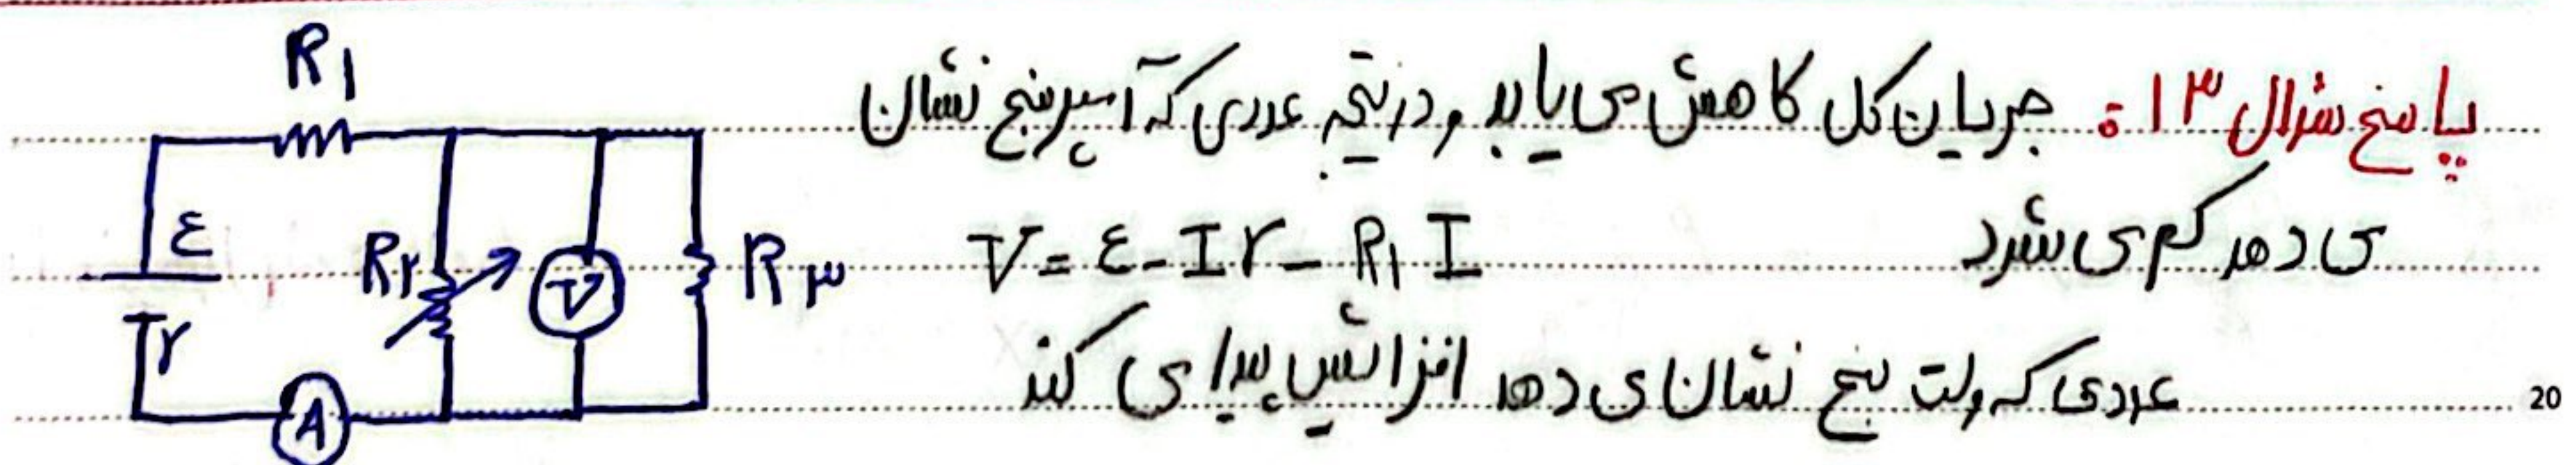 پاسخ سؤال ۱۳: جریان کل کاهش می یابد و در نتیجه عددی که آمپرسنج نشان
می دهد کم می شود
V = ε - Ir - R₁ I
عددی که ولت سنج نشان می دهد افزایش پیدا می کند
R₁
ε
r
R₂
V
R₃
A
20